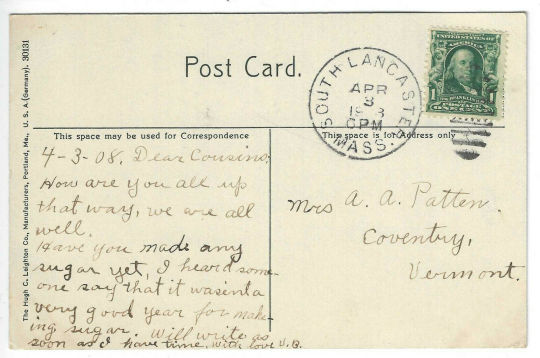 Post Card.
SOUTH LANCASTER
APR
3
6PM
MASS.
UNITED STATES OF AMERICA
1
The Hugh C. Leighton Co., Manufacturers, Portland, Me., U. S. A. (Germany). 30131
This space may be used for Correspondence
This space is for Address only
4-3-08. Dear Cousins,
How are you all up
that way, we are all
well.
Have you made any
sugar yet, I heard some-
one say that it wasent a
very good year for mak-
ing sugar. Will write as
soon as I have time, with love
Mrs A. A. Patten.
Coventry,
Vermont.